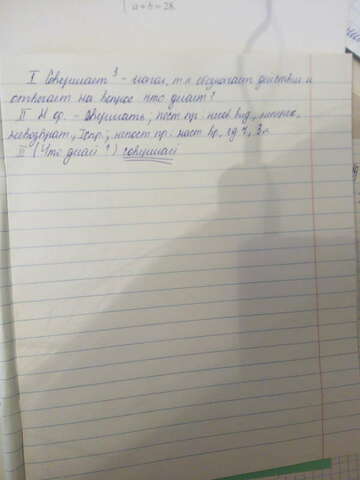 a + b = 28.
I Совершает³ - глагол, т.к обозначает действия и
отвечает на вопрос что делает?
II Н.ф. - совершать; пост. пр. несов. вид., неперех.,
невозврат., I спр.; непост. пр. наст. вр., ед. ч., 3 л.
III (Что делает?) совершает